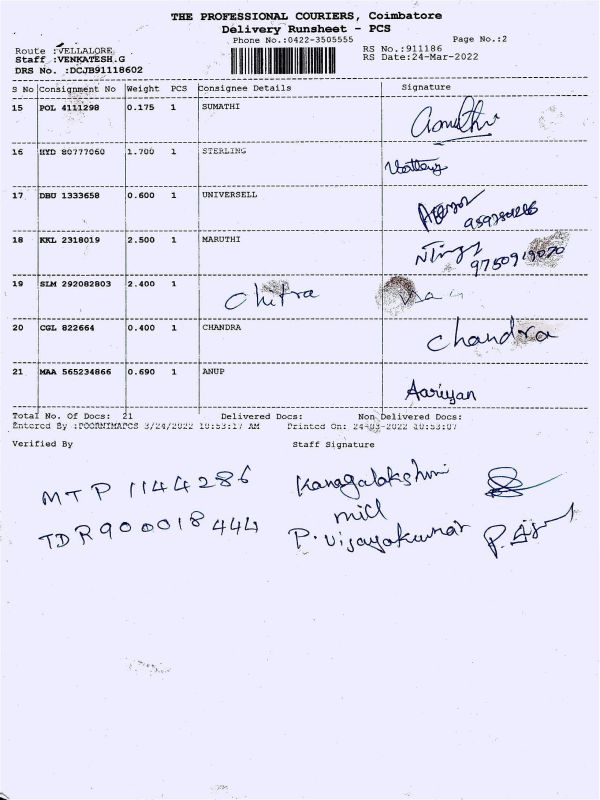 THE PROFESSIONAL COURIERS, Coimbatore
Delivery Runsheet - PCS
Phone No.:0422-3505555 Page No.:2
Route :VELLALORE RS No.:911186
Staff :VENKATESH.G RS Date:24-Mar-2022
DRS No. :DCJB91118602
S No Consignment No Weight PCS Consignee Details Signature
15 POL 4111298 0.175 1 SUMATHI
16 HYD 80777060 1.700 1 STERLING
17 DBU 1333658 0.600 1 UNIVERSELL
18 KKL 2318019 2.500 1 MARUTHI
19 SLM 292082803 2.400 1 Chitra
20 CGL 822664 0.400 1 CHANDRA Chandra
21 MAA 565234866 0.690 1 ANUP Aariyan
Total No. Of Docs: 21 Delivered Docs: Non Delivered Docs:
Entered By :POORNIMAPCS 3/24/2022 10:53:17 AM Printed On: 24-03-2022 10:53:07
Verified By Staff Signature
MTP 1144286 Kanagalakshmi
mill
TDR900018444 P. Vijayakumar